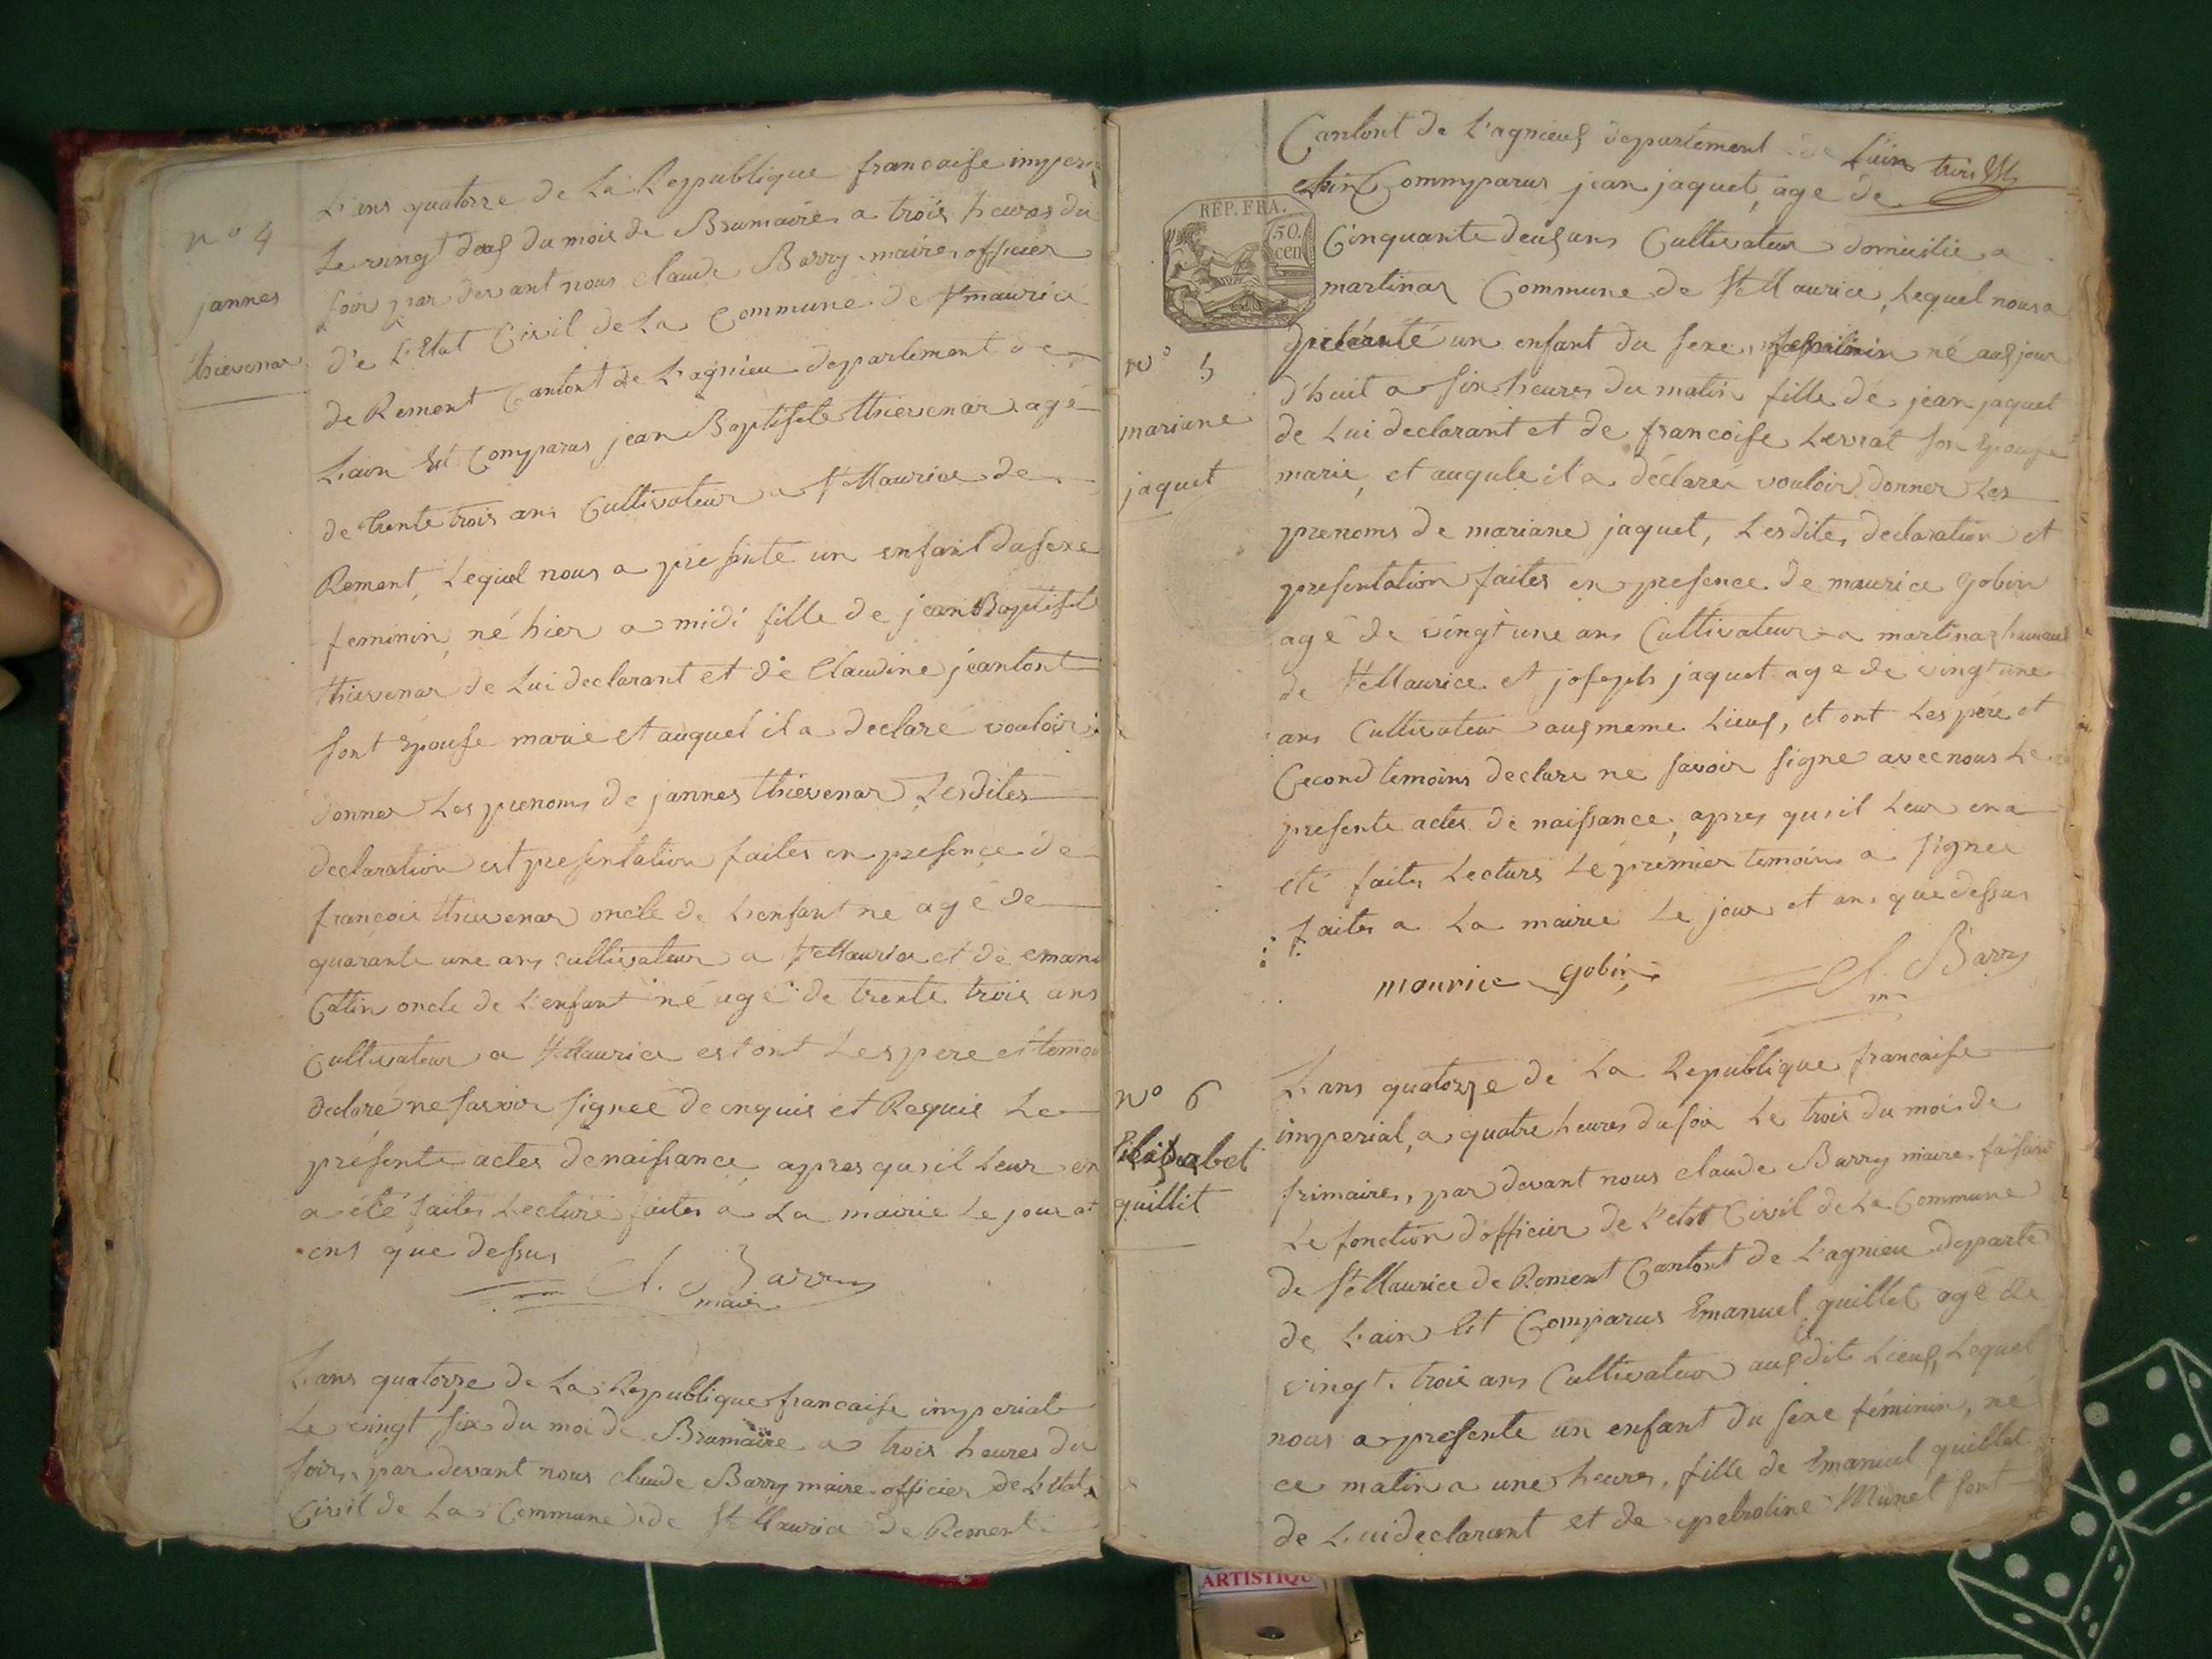 n° 4
jannes
thievenar
L'ans quatorze de La Republique francaise imper
Le vingt deux du mois de Brumaire a trois heures du
soir par devant nous claude Barry maire officier
d'e L'Etat Civil de La Commune de St maurice
de Rement Cantont de L'agnieu departement de
L'ain Est Comparus jean Baptiste thievenar agé
de trente trois ans Cultivateur a St Maurice de
Rement, Lequel nous a presenté un enfant du sexe
feminin, né hier a midi fille de jean Baptiste
thievenar de Lui declarant et de Claudine jeantont
sont Epouse marie et auquel il a declaré vouloir
donner Les prenoms de jannes thievenar Lesdites
declaration est presentation faites en presence de
francois thievenar oncle de L'enfant né agé de
quarante une ans cultivateur a St Maurice et de eman
Cottin oncle de L'enfant né agé de trente trois ans
Cultivateur a St Maurice est ont Les pere et temoi
declaré ne savoir signée de enquis et Requis Le
présente actes de naissance, apres qu'il Leur en
a été faites Lecture faites a La mairie Le jour et
ans que dessus
Cl. Barry
maire
L'ans quatorze de La Republique francaise imperial
Le vingt six du moi de Brumaire a trois heures du
soir, par devant nous claude Barry maire officier de L'Etat
Civil de La Commune de St Maurice de Rement
Cantont de L'agnieux departement de L'ain
Est Commparus jean jaquet, agé de
REP. FRA.
50.
cen
Cinquante deux ans Cultivateur domicilié a
martinaz Commune de St Maurice, Lequel nous a
presenté un enfant du sexe feminin né aujour
d'huit a six heures du matin fille de jean jaquet
de Lui declarant et de francoise Levrat son Epouse
marie, et auquele il a déclaré vouloir donner Les
prenoms de mariane jaquet, Lesdite, declaration et
presentation faites en presence de maurice gobin
agé de vingt une ans Cultivateur a martinaz
de St Maurice et joseph jaquet age de vingt une
ans Cultivateur aux meme Lieux, et ont Les pere et
Cecond temoins declare ne savoir signe avec nous Le
presente actes de naissance, apres qu'il Leur en a
été faites Lectures Le premier temoin a signee
faites a La mairie Le jour et ans que dessus
n° 5
mariane
jaquet
maurice gobin
Cl. Barry
m
n° 6
quillit
L'ans quatorze de La Republique francaise
imperial, a quatre heures du soir Le trois du moi de
frimaire, par devant nous claude Barry maire faisant
Le fonction d'officier de L'etat Civil de La Commune
de St Maurice de Rement Cantont de L'agnieu departe
de L'ain Est Comparus Emanuel quillet agé de
vingt trois ans Cultivateur aux dit Lieux, Lequel
nous a presenté un enfant du sexe féminin, né
ce matin a une heures, fille de Emanuel quillet
de Lui declarant et de petroline Munet sont
ARTISTIQU